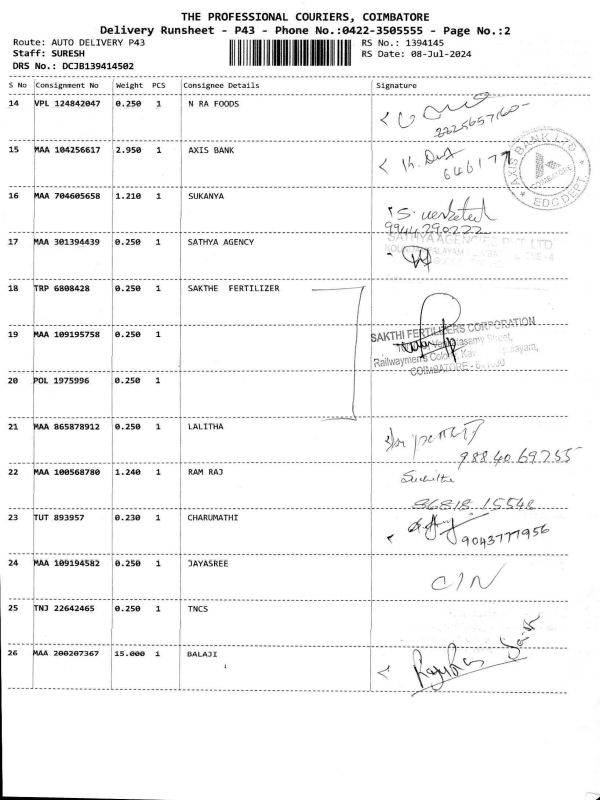 THE PROFESSIONAL COURIERS, COIMBATORE
Delivery Runsheet - P43 - Phone No.:0422-3505555 - Page No.:2
Route: AUTO DELIVERY P43 RS No.: 1394145
Staff: SURESH RS Date: 08-Jul-2024
DRS No.: DCJB139414502
S No Consignment No Weight PCS Consignee Details Signature
14 VPL 124842047 0.250 1 N RA FOODS
15 MAA 104256617 2.950 1 AXIS BANK
646177
AXIS BANK LTD
COIMBATORE
EDC DEPT.
16 MAA 704605658 1.210 1 SUKANYA
S. venkated
9944290222
17 MAA 301394439 0.250 1 SATHYA AGENCY
SATHYA AGENCIES PVT LTD
18 TRP 6808428 0.250 1 SAKTHE FERTILIZER
SAKTHI FERTILIZERS CORPORATION
19 MAA 109195758 0.250 1
Street,
Railwaymen's Colony
COIMBATORE
20 POL 1975996 0.250 1
21 MAA 865878912 0.250 1 LALITHA
98840 69755
22 MAA 100568780 1.240 1 RAM RAJ
Suchitha
86818 15548
23 TUT 893957 0.230 1 CHARUMATHI
9043777956
24 MAA 109194582 0.250 1 JAYASREE
CIN
25 TNJ 22642465 0.250 1 TNCS
26 MAA 200207367 15.000 1 BALAJI